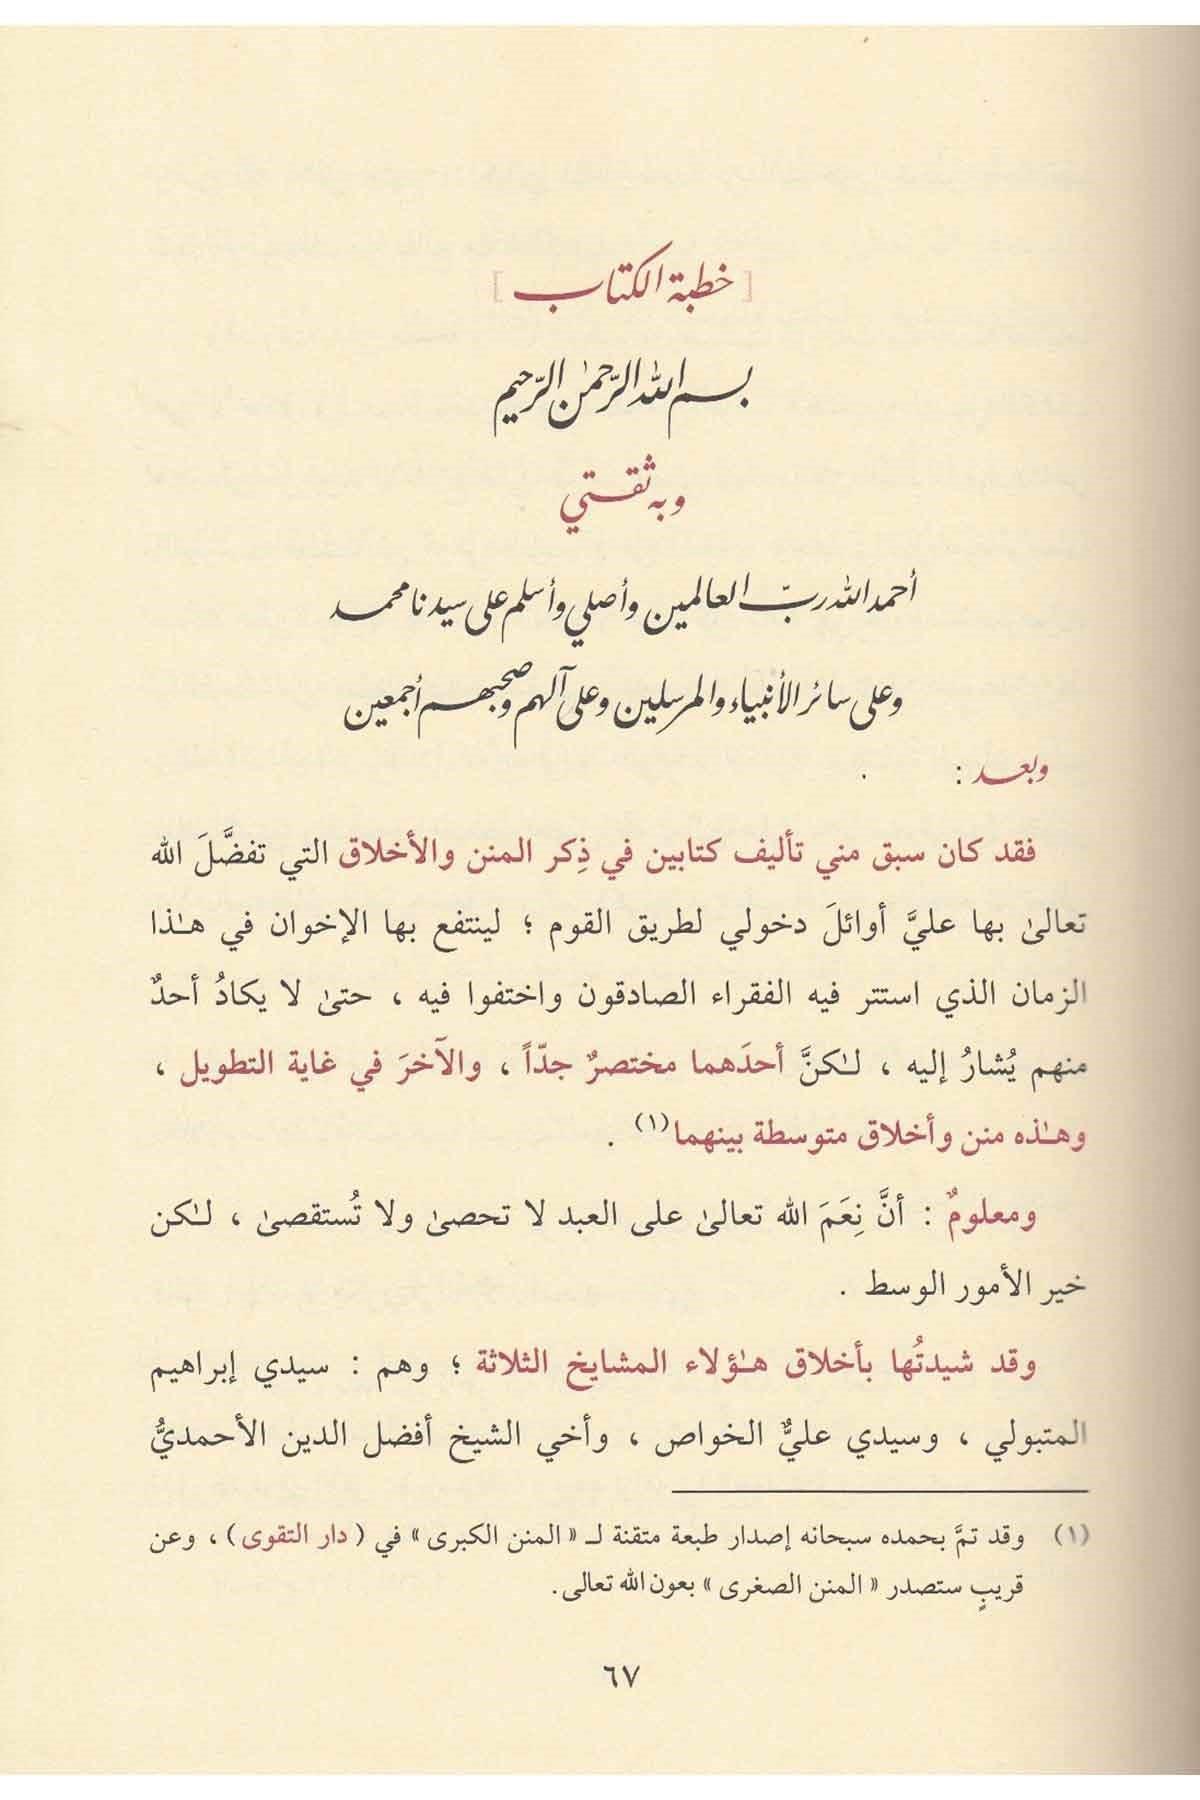 [ خطبة الكتاب ]
بسم الله الرّحمٰن الرّحيم
وبه ثقتي
أحمد الله ربّ العالمين وأصلي وأسلم على سيدنا محمد
وعلى سائر الأنبياء والمرسلين وعلى آلهم وصحبهم أجمعين
وبعد :
فقد كان سبق مني تأليف كتابين في ذِكر المنن والأخلاق التي تفضَّلَ الله
تعالىٰ بها عليَّ أوائلَ دخولي لطريق القوم ؛ لينتفع بها الإخوان في هـٰذا
الزمان الذي استتر فيه الفقراء الصادقون واختفوا فيه ، حتىٰ لا يكادُ أحدٌ
منهم يُشارُ إليه ، لـٰكنَّ أحدَهما مختصرٌ جدّاً ، والآخرَ في غاية التطويل ،
وهـٰذه منن وأخلاق متوسطة بينهما(١) .
ومعلومٌ : أنَّ نِعَمَ الله تعالىٰ على العبد لا تحصىٰ ولا تُستقصىٰ ، لـٰكن
خير الأمور الوسط .
وقد شيدتُها بأخلاق هـٰؤلاء المشايخ الثلاثة ؛ وهم : سيدي إبراهيم
المتبولي ، وسيدي عليٌّ الخواص ، وأخي الشيخ أفضل الدين الأحمديُّ
(١) وقد تمَّ بحمده سبحانه إصدار طبعة متقنة لـ « المنن الكبرى » في ( دار التقوى ) ، وعن
قريبٍ ستصدر « المنن الصغرى » بعون الله تعالى .
٦٧